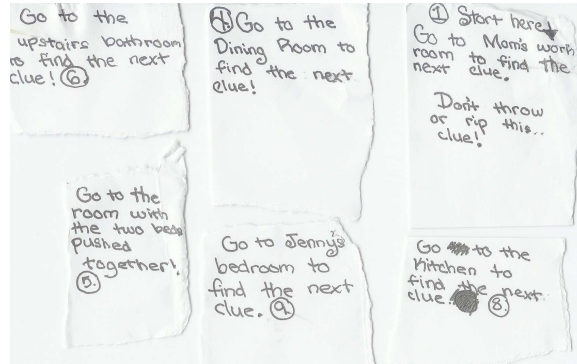 Go to the
upstairs bathroom
to find the next
clue! 6.
4. Go to the
Dining Room to
find the next
clue!
1 Start here!
Go to Mom's work
room to find the
next clue.
Don't throw
or rip this..
clue!
Go to the
room with
the two beds
pushed
together!
5.
Go to Jenny's
bedroom to
find the next
clue. 9.
Go to the
Kitchen to
find the next
clue. 8.